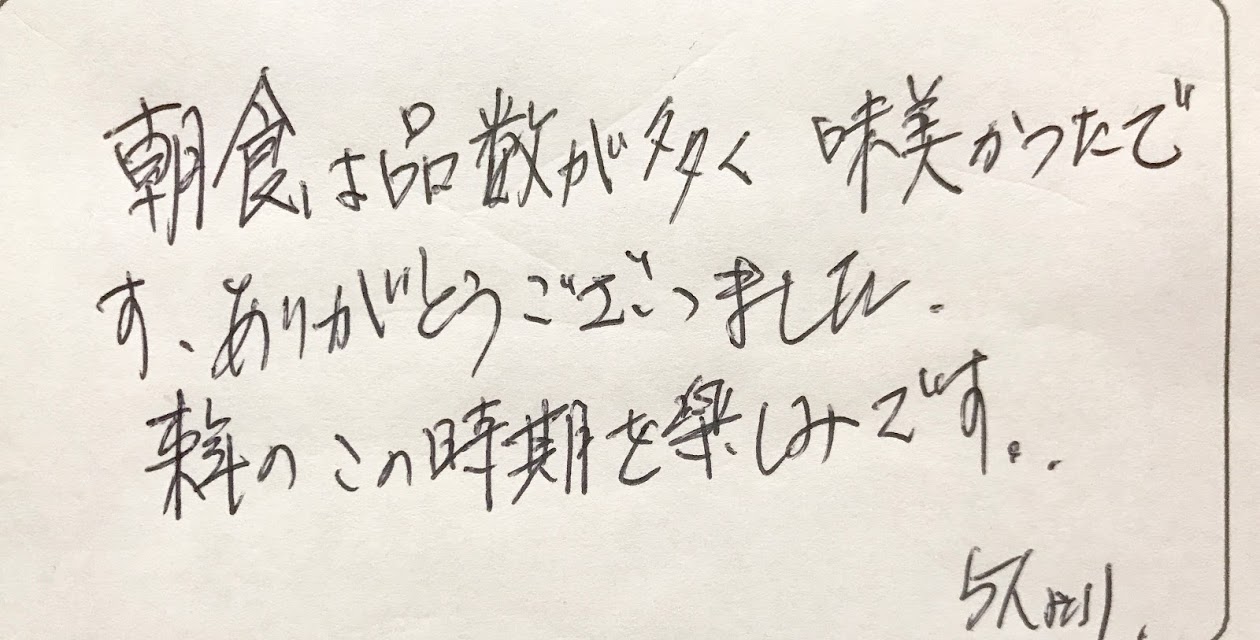 朝食は品数が多く 味美かつたで
す、ありがとうございつました.
来年の この時期を楽しみです..
5人より.